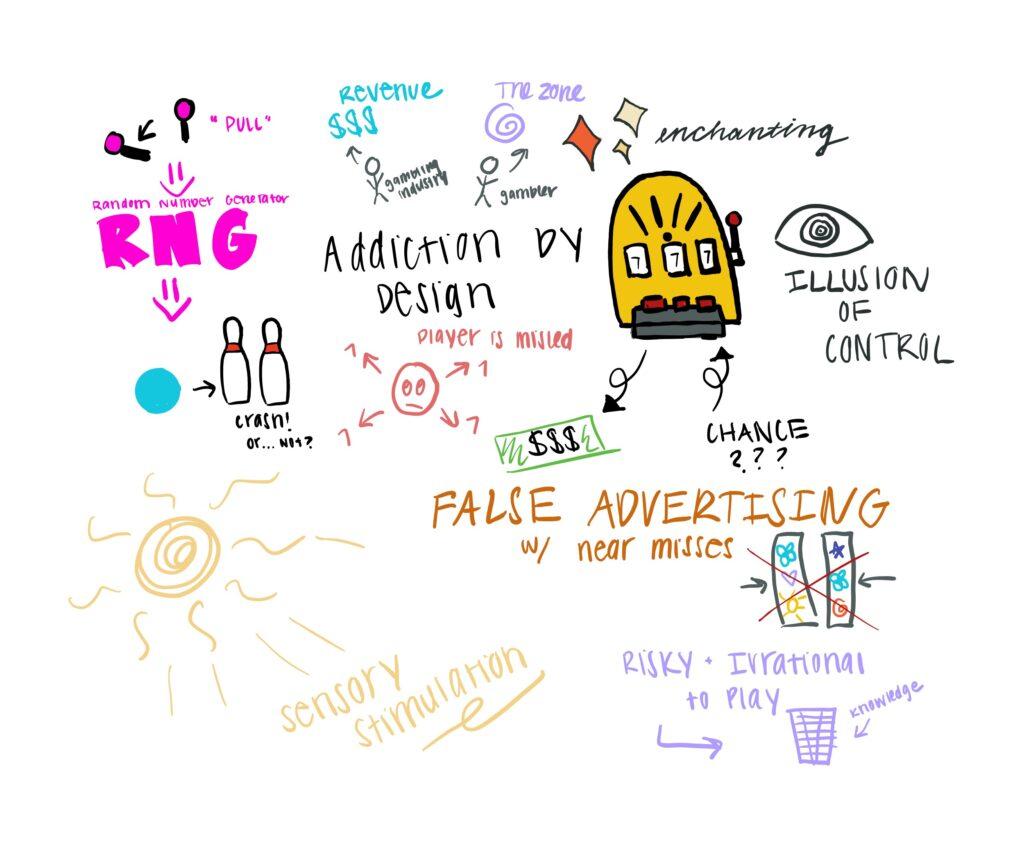 Revenue
$$$
The Zone
"PULL"
enchanting
gambling
industry
gambler
Random Number Generator
RNG
Addiction by
Design
7 7 7
ILLUSION
OF
CONTROL
player is misled
7
7
7
7
crash!
or... Not?
$$$
CHANCE
? ? ?
FALSE ADVERTISING
w/ near misses
Risky + Irrational
to Play
knowledge
sensory
stimulation